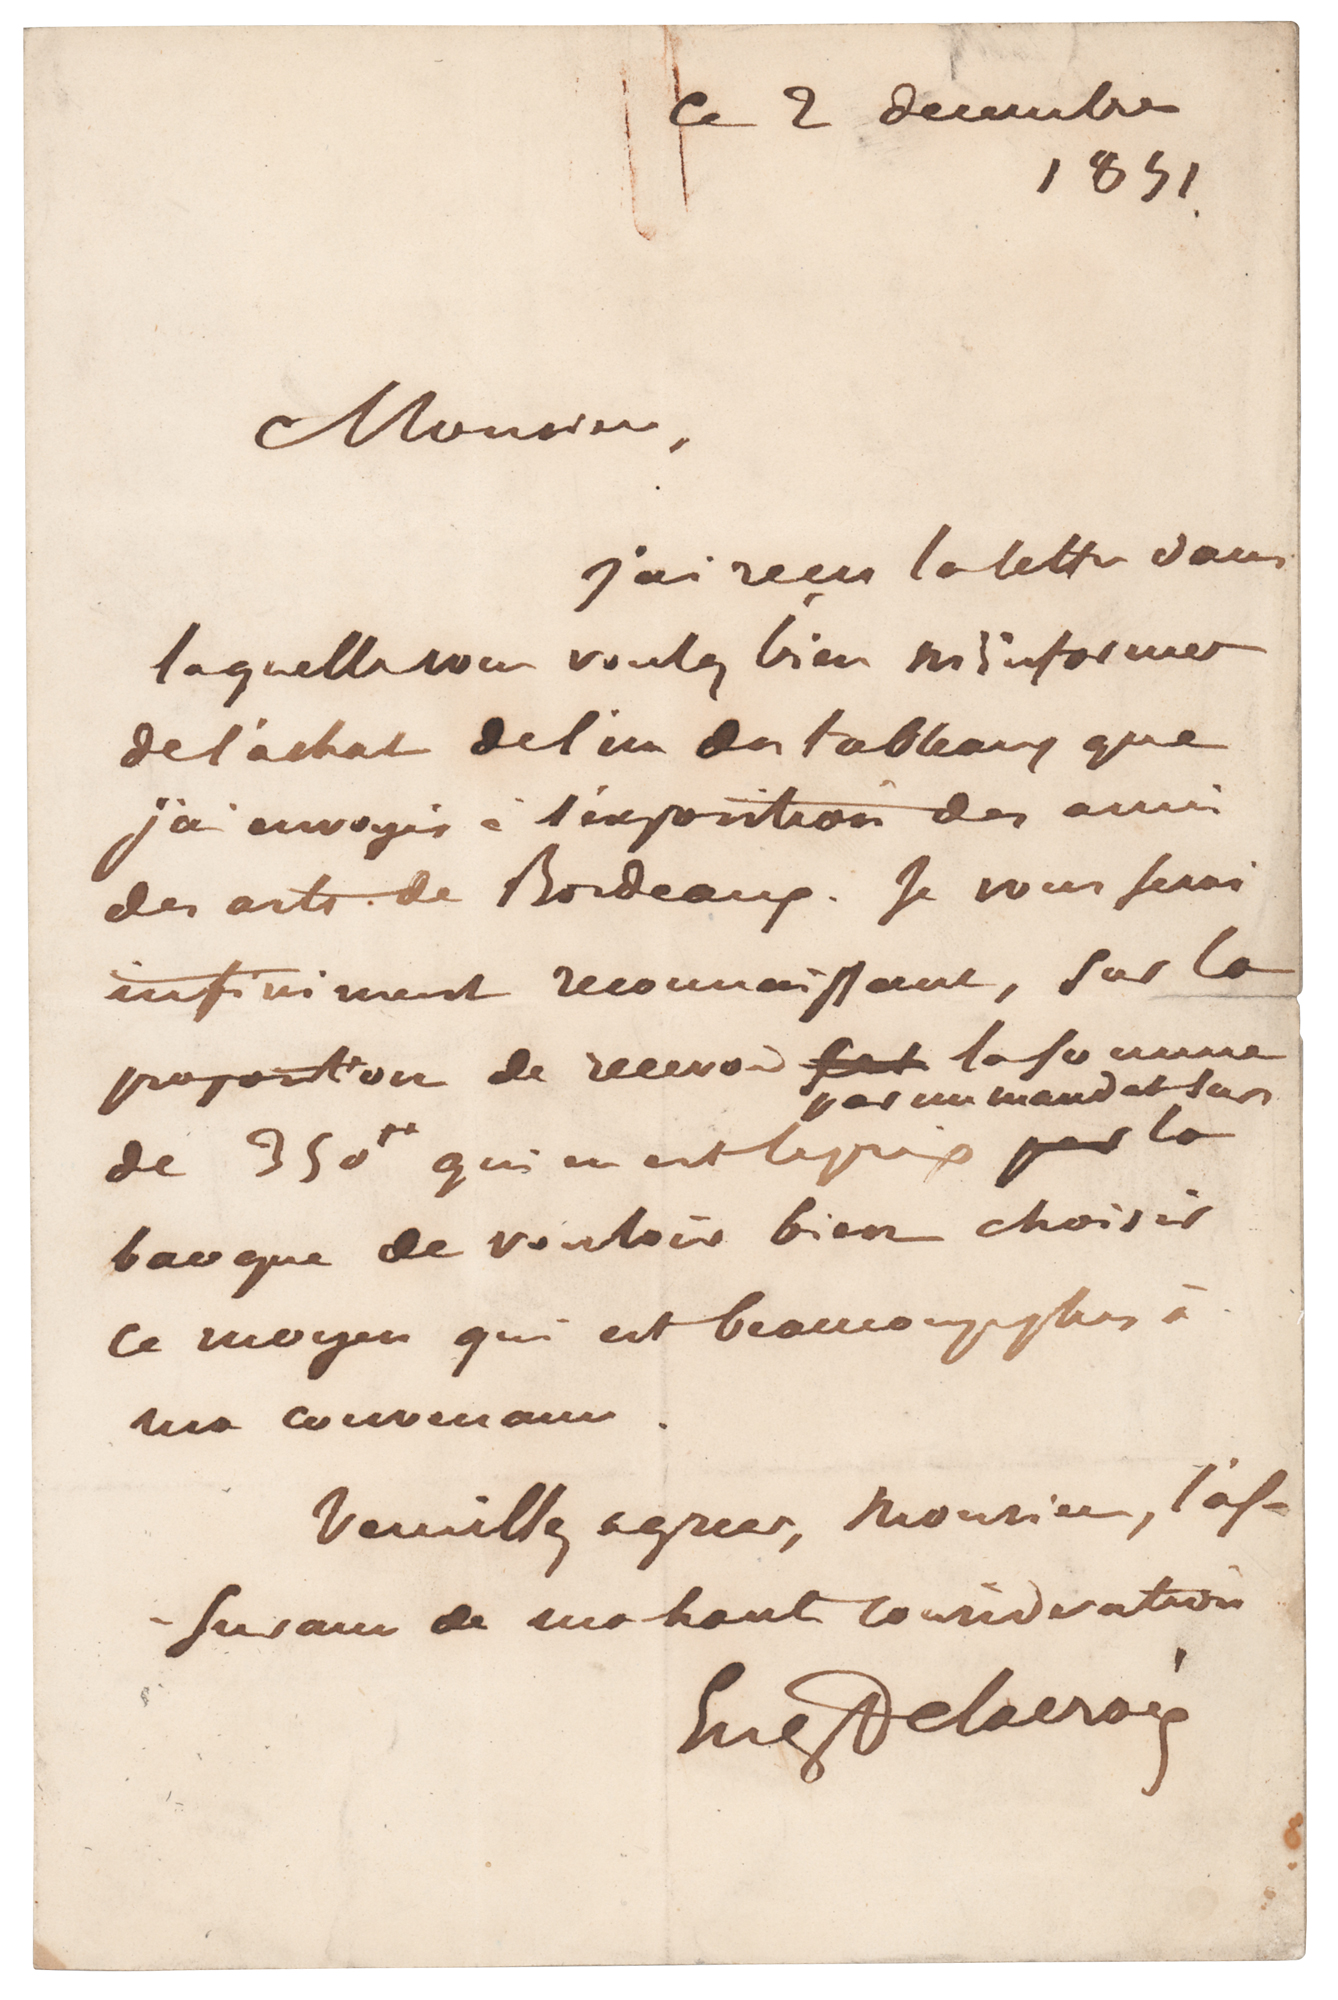 ce 2 decembre
1851.
Monsieur,
j'ai reçu la lettre dans
laquelle vous voulez bien m'informer
de l'achat de l'un des tableaux que
j'ai envoyés à l'exposition des amis
des arts de Bordeaux. Je vous serai
infiniment reconnaissant, sur la
proposition de recevoir la somme
par un mandat sur
de 350 fr qui en est le prix par la
banque de vouloir bien choisir
ce moyen qui est beaucoup plus à
ma convenance.
Veuillez agreer, Monsieur, l'as-
-surance de ma haute consideration
Eug Delacroix